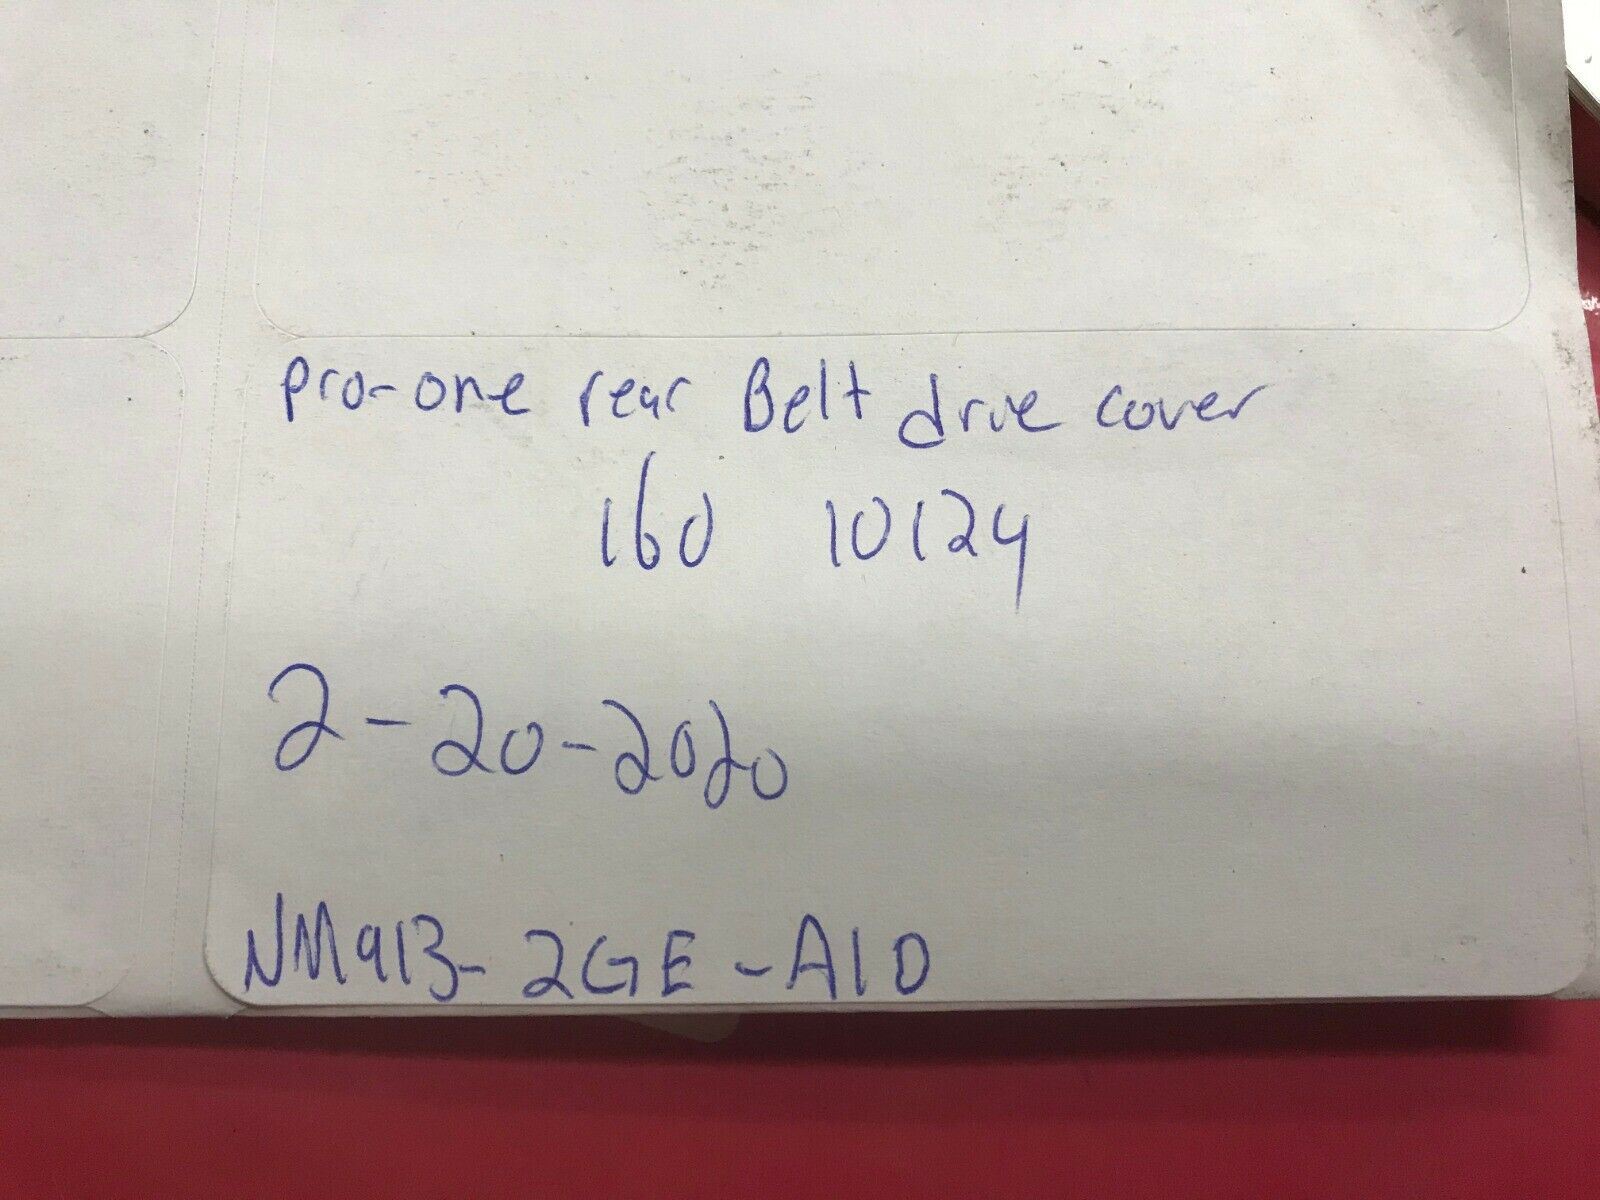 pro-one rear Belt drive cover
160 10124
2-20-2020
NM913-2GE-A10